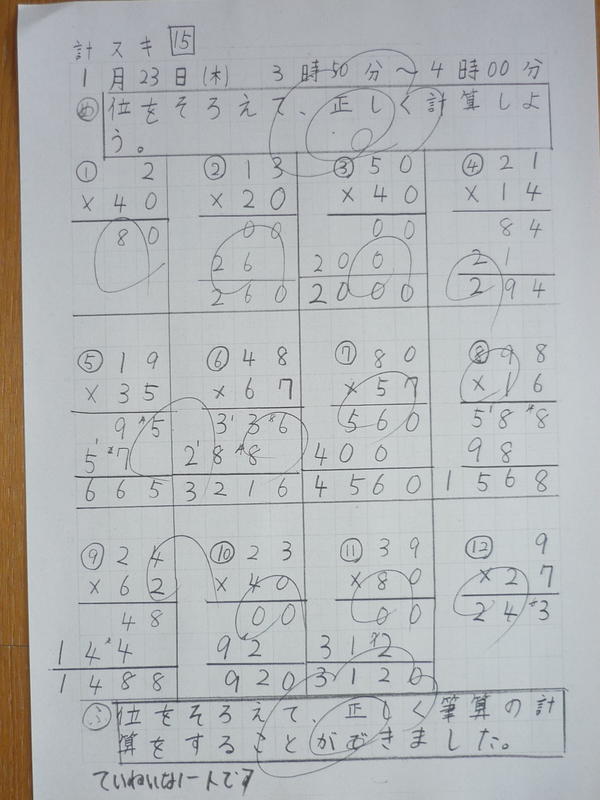 計スキ 15
1月23日(木) 3時50分〜4時00分
め 位をそろえて、正しく計算しよ
う。
① 2 ② 13 ③ 50 ④ 21
×40 ×20 ×40 ×14
80 00 00 84
26 200 21
260 2000 294
⑤ 19 ⑥ 48 ⑦ 80 ⑧ 98
×35 ×67 ×57 ×16
95 336 560 588
57 288 400 98
665 3216 4560 1568
⑨ 24 ⑩ 23 ⑪ 39 ⑫ 9
×62 ×40 ×80 ×27
48 00 00 243
144 92 312
1488 920 3120
ふ 位をそろえて、正しく筆算の計
算をすることができました。
ていねいなノートです